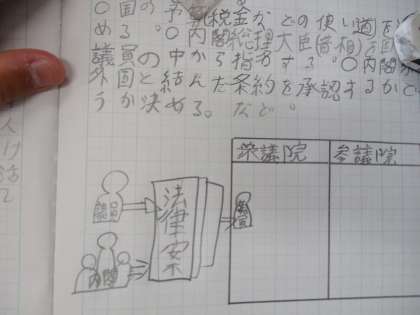 ○国の予
税金か との使い道を
める。○内閣総理大臣(首相)を国
議員の中から指名する。○内閣
外国と結んだ条約を承認するかど
うか決める。など。
衆議院
参議院
議員
法律案
議員
内閣